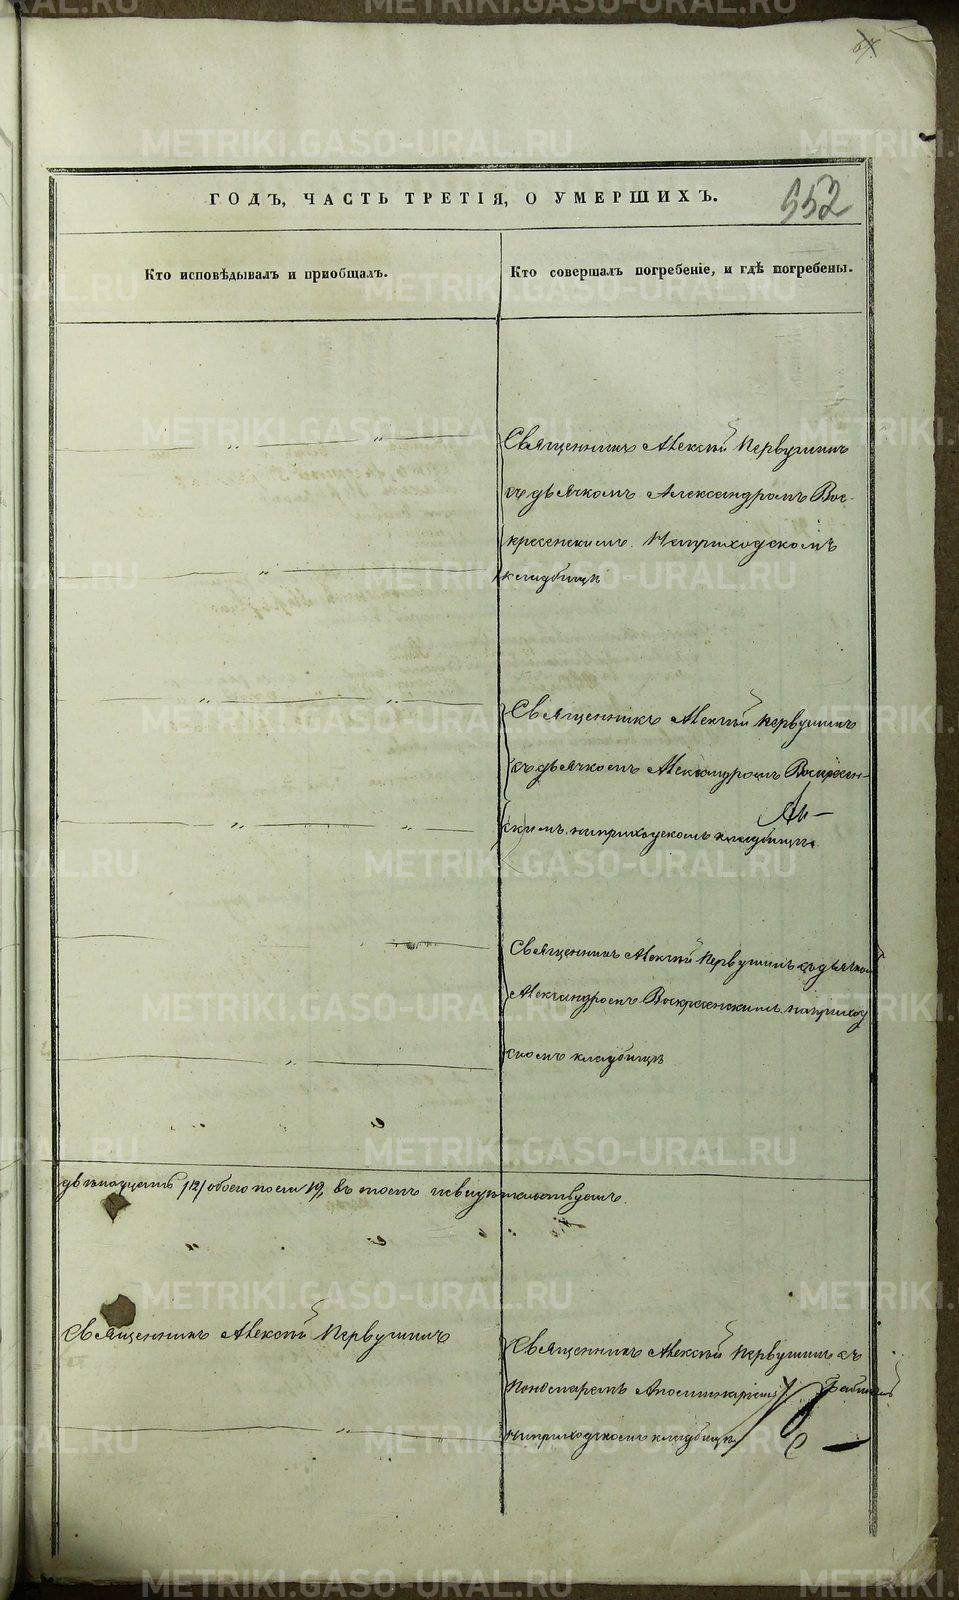 552
ГОДЪ, ЧАСТЬ ТРЕТІЯ, О УМЕРШИХЪ.
Кто исповѣдывалъ и пріобщалъ.
Кто совершалъ погребеніе, и гдѣ погребены.
Священникъ Алексѣй Первушинъ
съ дьячкомъ Александромъ Вос-
кресенскимъ. На приходскомъ
кладбищѣ
Священникъ Алексѣй Первушинъ
съ дьячкомъ Александромъ Воскресен-
скимъ. на приходскомъ кладбищѣ
Священникъ Алексѣй Первушинъ съ дьячком
Александромъ Воскресенскимъ. на приход
скомъ кладбищѣ
двѣнадцать /12/ обоего пола 19, въ томъ и свидѣтельствуемъ.
Священникъ Алексѣй Первушинъ
Священникъ Алексѣй Первушинъ съ
Пономаремъ
на приходскомъ кладбищѣ
METRIKI.GASO-URAL.RU